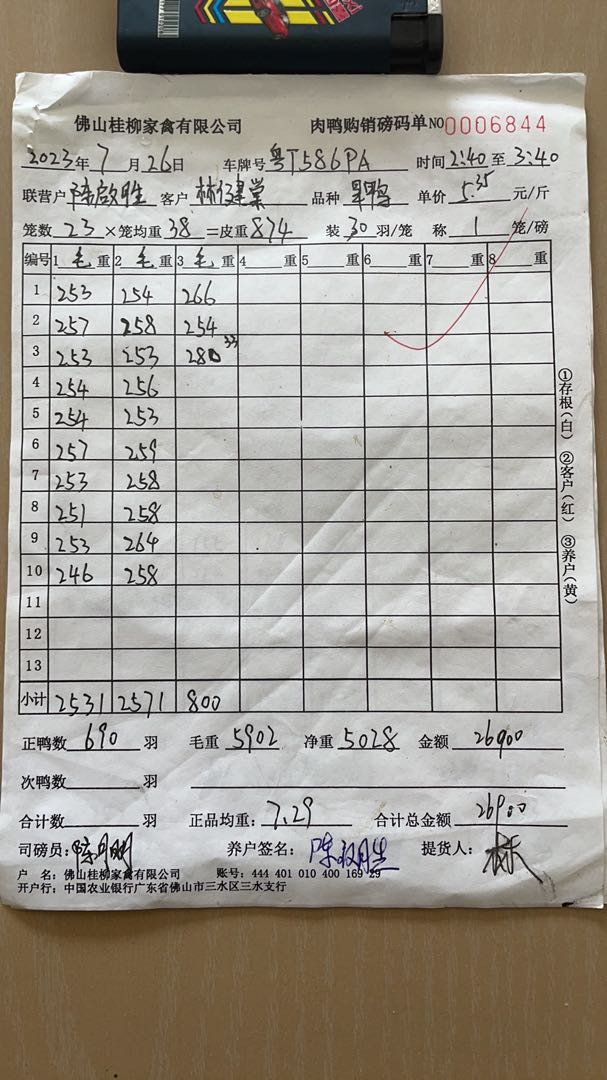 佛山桂柳家禽有限公司 肉鸭购销磅码单 NO 0006844
2023年 7月 26日 车牌号 粤T586PA 时间 2:40 至 3:40
联营户 陈啟胜 客户 林建棠 品种 单价 5.35 元/斤
笼数 23 ×笼均重 38 =皮重 874 装 30 羽/笼 称 1 笼/磅
编号 1 毛 重 2 毛 重 3 毛 重 4 重 5 重 6 重 7 重 8 重
1 253 254 266
2 257 258 254
3 253 253 280 33
4 254 256
5 254 253
6 257 259
7 253 258
8 251 258
9 253 264
10 246 258
11
12
13
小计 2531 2571 800
正鸭数 690 羽 毛重 5902 净重 5028 金额 26900
次鸭数 羽
合计数 羽 正品均重: 7.29 合计总金额 26900
司磅员: 养户签名: 提货人: 林
户 名: 佛山桂柳家禽有限公司 账号: 444 401 010 400 169 29
开户行: 中国农业银行广东省佛山市三水区三水支行
①存根(白) ②客户(红) ③养户(黄)